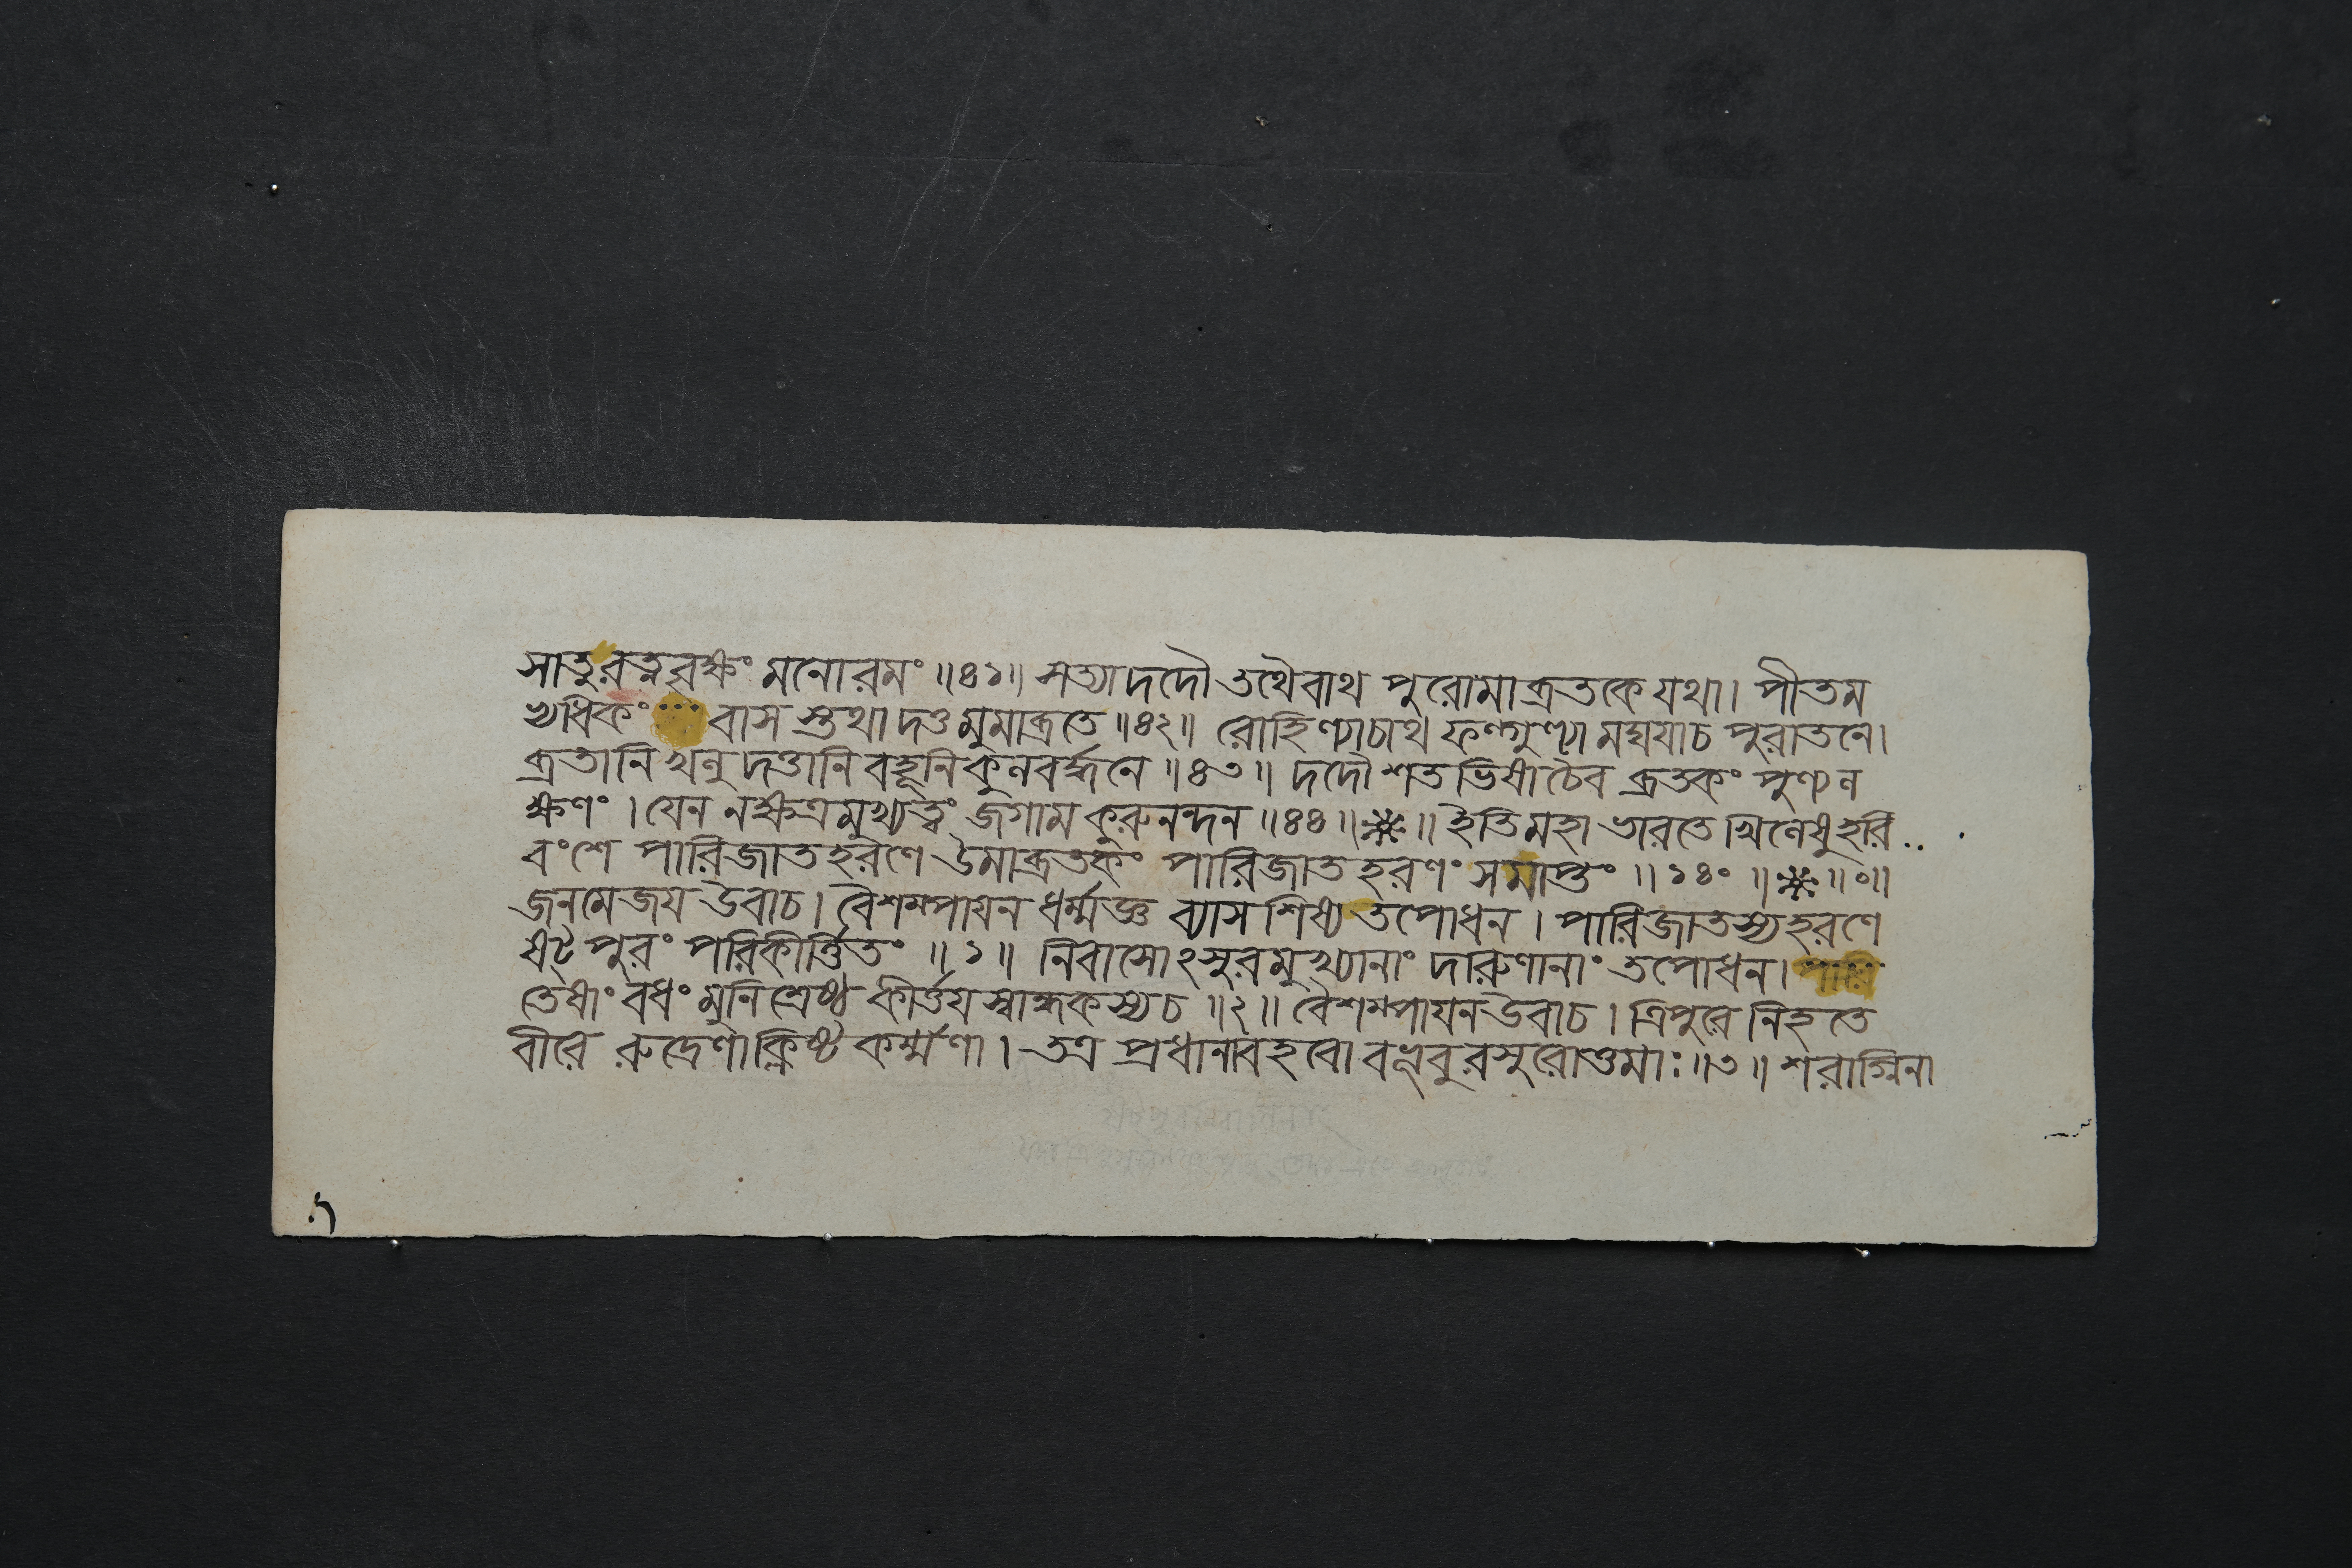 সাতুরত্নবৃক্ষং মনোরমং ॥৪১॥ সত্যাদদৌ তথৈবাথ পুরোমাব্রতকে যথা। পীতম
প্যধিকং বাস স্তথা দত্তমুমাব্রতে ॥৪২॥ রোহিণ্যাচাথ ফল্গুণ্যা মঘযাচ পুরাতনে।
ব্রতানি খলু দত্তানি বহূনি কুলবর্দ্ধনে ॥৪৩॥ দদৌ শতভিষাচৈব ব্রতকং পুণ্যল
ক্ষণং । যেন নক্ষত্রমুখ্যত্বং জগাম কুরুনন্দন ॥৪৪॥ ॥ ইতি মহাভারতে খিলেষুহরি
বংশে পারিজাতহরণে উমাব্রতকং পারিজাতহরণং সমাপ্তং ॥ ১৪০ ॥ ॥০॥
জনমেজয উবাচ। বৈশম্পাযন ধর্ম্মজ্ঞ ব্যাসশিষ্য তপোধন । পারিজাতস্যহরণে
ষট্পুরং পরিকীর্ত্তিতং ॥ ১॥ নিবাসোঽসুরমুখ্যানাং দারুণানাং তপোধন। পারি
তেষাং বধং মুনিশ্রেষ্ঠ কীর্ত্তযস্বান্ধকস্যচ ॥২॥ বৈশম্পাযন উবাচ। ত্রিপুরে নিহতে
বীরে রুদ্রেণাক্লিষ্টকর্ম্মণা। তত্র প্রধানাবহবো বভূবুরসুরোত্তমাঃ ॥৩॥ শরাগ্নিনা